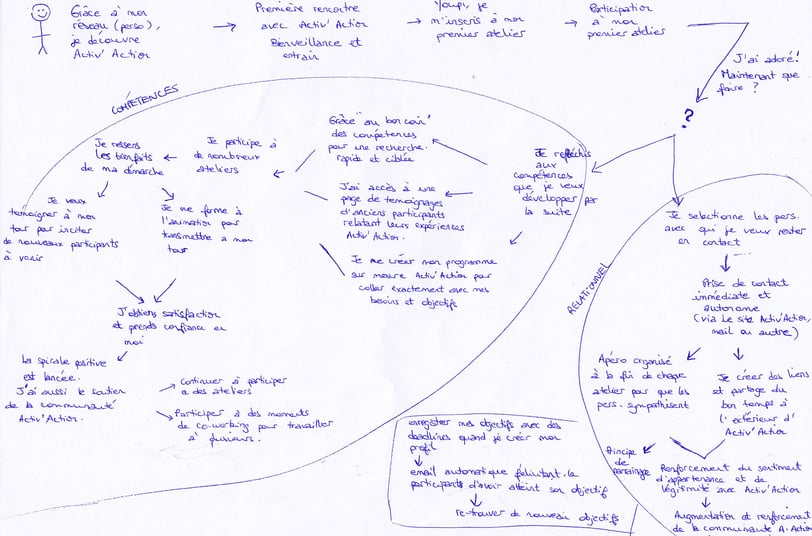 Grâce à mon
réseau (perso),
je découvre
Activ' Action
Première rencontre
avec Activ' Action
Bienveillance et
entrain
Youpi, je
m'inscris à mon
premier atelier
Participation
à mon
premier atelier
J'ai adoré!
Maintenant que
faire ?
?
COMPÉTENCES
Je réfléchis
aux
compétences
que je veux
développer par
la suite
Grâce "au bon coin"
des compétences
pour une recherche
rapide et ciblée
J'ai accès à une
page de témoignages
d'anciens participants
relatant leurs expériences
Activ' Action.
Je me créer mon programme
sur mesure Activ'Action pour
coller exactement avec mes
besoins et objectifs
Je participe à
de nombreux
ateliers
Je ressens
les bienfaits
de ma démarche
Je veux
témoigner à mon
tour pour inciter
de nouveaux participants
à venir
Je me forme à
l'animation pour
transmettre à mon
tour
J'obtiens satisfaction
et prends confiance en
moi
La spirale positive
est lancée.
J'ai aussi le soutien
de la communauté
Activ'Action.
Continuer à participer
a des ateliers
Participer à des moments
de co-working pour travailler
à plusieurs.
enregistrer mes objectifs avec des
deadlines quand je créer mon
profil
email automatique félicitant les
participants d'avoir atteint son objectif
re-trouver de nouveaux objectifs
RELATIONNEL
Je selectionne les pers.
avec qui je veux rester
en contact
Prise de contact
immédiate et
autonome
(via Le site Activ'Action,
mail ou autre)
Apéro organisé
à la fin de chaque
atelier pour que les
pers. sympathisent
Je créer des liens
et partage du
bon temps à
l'extérieur d'
Activ'Action
Principe
de
parrainage
Renforcement du sentiment
d'appartenance et de
légitimité avec Activ'Action
Augmentation et renforcement
de la communauté A-Action